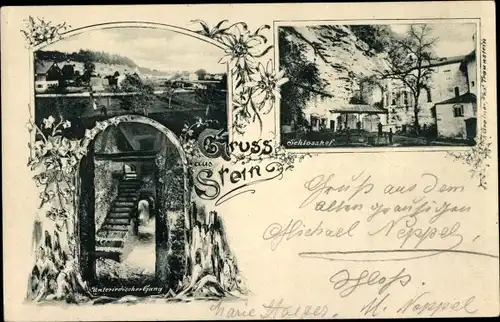 Gruss
aus
Stein
Schlosshof.
Unterirdischer Gang
Gruß aus dem
alten
Michael Neppel,
Schloß.
Marie
M. Neppel